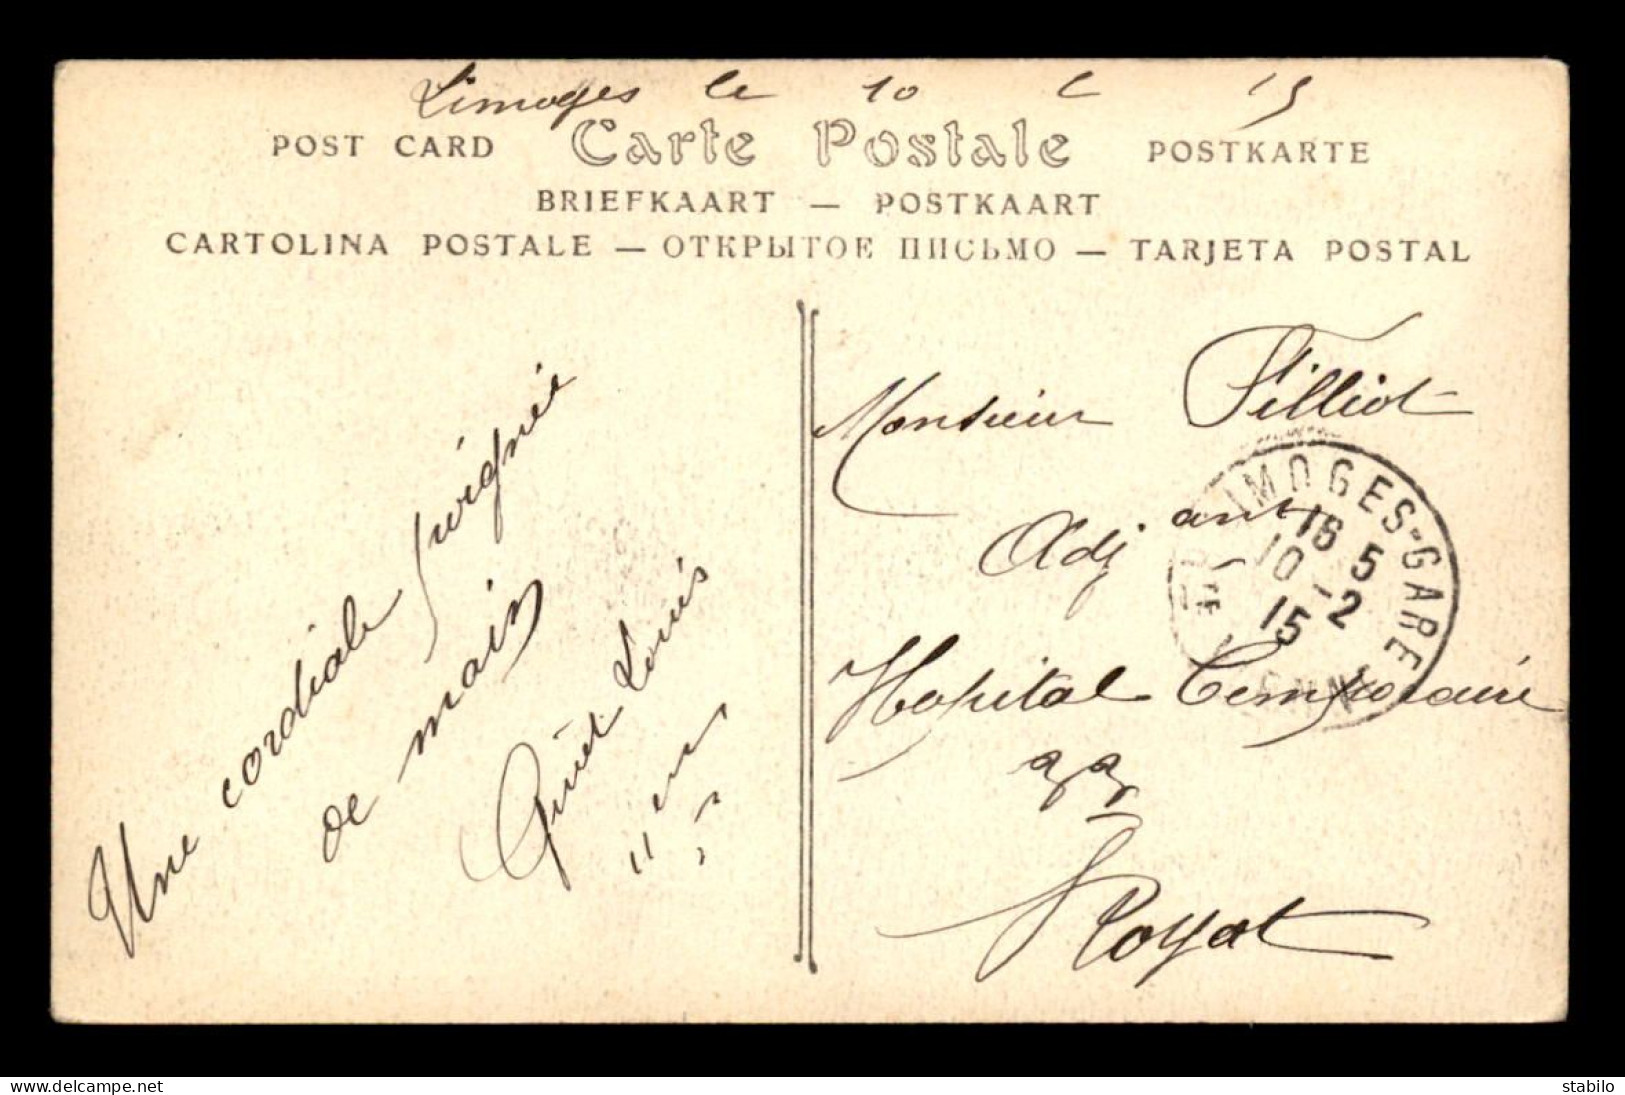 Limoges le 10 2 15
POST CARD Carte Postale POSTKARTE
BRIEFKAART — POSTKAART
CARTOLINA POSTALE — ОТКРЫТОЕ ПИСЬМО — TARJETA POSTAL
Une cordiale poignée
de main
Louis
Monsieur Filliot
Adj
Hopital Temporaire
Royat
LIMOGES-GARE
16 5
10 -2
15
delcampe.net
stabilo